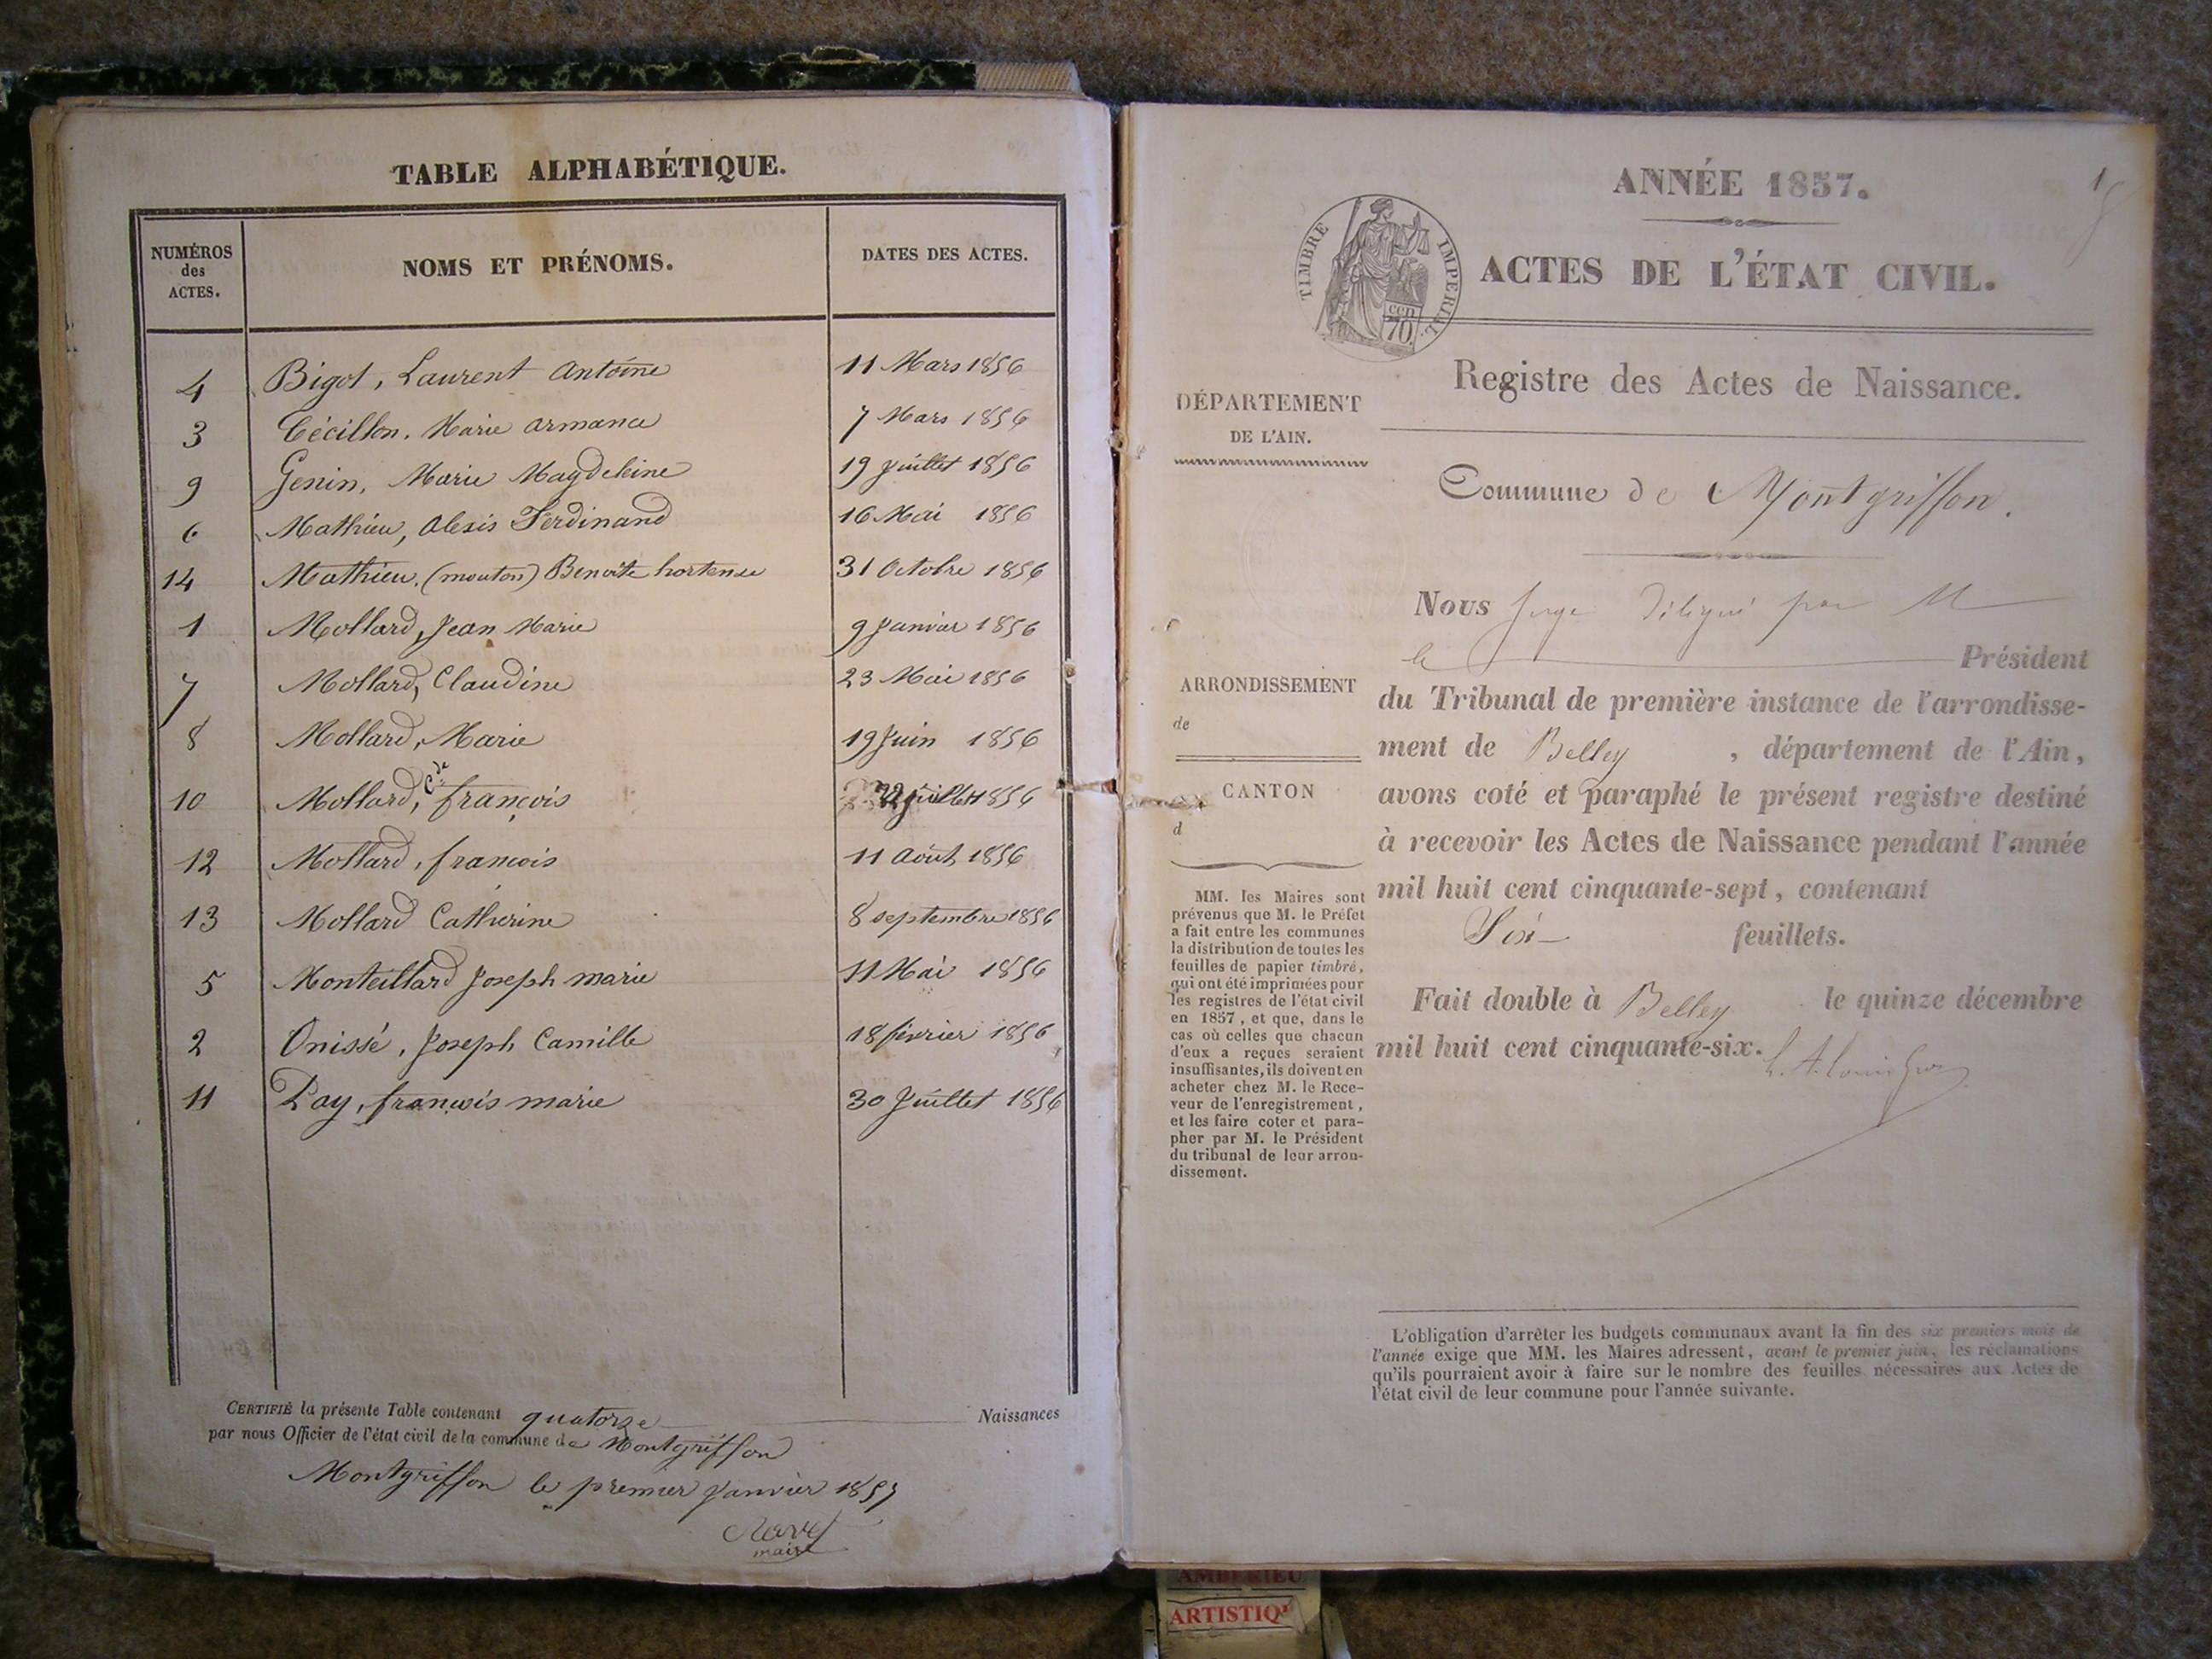 TABLE ALPHABÉTIQUE.
NUMÉROS des ACTES.
NOMS ET PRÉNOMS.
DATES DES ACTES.
4 Bigot, Laurent antoine 11 Mars 1856
3 Cécillon, Marie armance 7 Mars 1856
9 Genin, Marie Magdeleine 19 juillet 1856
6 Mathieu, alexis Ferdinand 16 Mai 1856
14 Mathieu, (mouton) Benoite hortense 31 Octobre 1856
1 Mollard, Jean Marie 9 Janvier 1856
7 Mollard, Claudine 23 Mai 1856
8 Mollard, Marie 19 Juin 1856
10 Mollard, Cde françois 22 juillet 1856
12 Mollard, francois 11 Août 1856
13 Mollard Catherine 8 septembre 1856
5 Monteillard Joseph marie 11 Mai 1856
2 Onissé, Joseph Camille 18 février 1856
11 Pay, francois marie 30 Juillet 1856
CERTIFIÉ la présente Table contenant quatorze Naissances
par nous Officier de l'état civil de la commune de Montgriffon
Montgriffon le premier Janvier 1857
maire
1
ANNÉE 1857.
TIMBRE IMPÉRIAL
CEN 70.
ACTES DE L'ÉTAT CIVIL.
Registre des Actes de Naissance.
DÉPARTEMENT
DE L'AIN.
Commune de Montgriffon.
ARRONDISSEMENT
de
CANTON
d
MM. les Maires sont
prévenus que M. le Préfet
a fait entre les communes
la distribution de toutes les
feuilles de papier timbré,
qui ont été imprimées pour
les registres de l'état civil
en 1857, et que, dans le
cas où celles que chacun
d'eux a reçues seraient
insuffisantes, ils doivent en
acheter chez M. le Rece-
veur de l'enregistrement,
et les faire coter et para-
pher par M. le Président
du tribunal de leur arron-
dissement.
Nous Juge délégué par M
le Président
du Tribunal de première instance de l'arrondisse-
ment de Belley, département de l'Ain,
avons coté et paraphé le présent registre destiné
à recevoir les Actes de Naissance pendant l'année
mil huit cent cinquante-sept, contenant
Six feuillets.
Fait double à Belley le quinze décembre
mil huit cent cinquante-six.
L'obligation d'arrêter les budgets communaux avant la fin des six premiers mois de
l'année exige que MM. les Maires adressent, avant le premier juin, les réclamations
qu'ils pourraient avoir à faire sur le nombre des feuilles nécessaires aux Actes de
l'état civil de leur commune pour l'année suivante.
AMBERIEU
ARTISTIQ